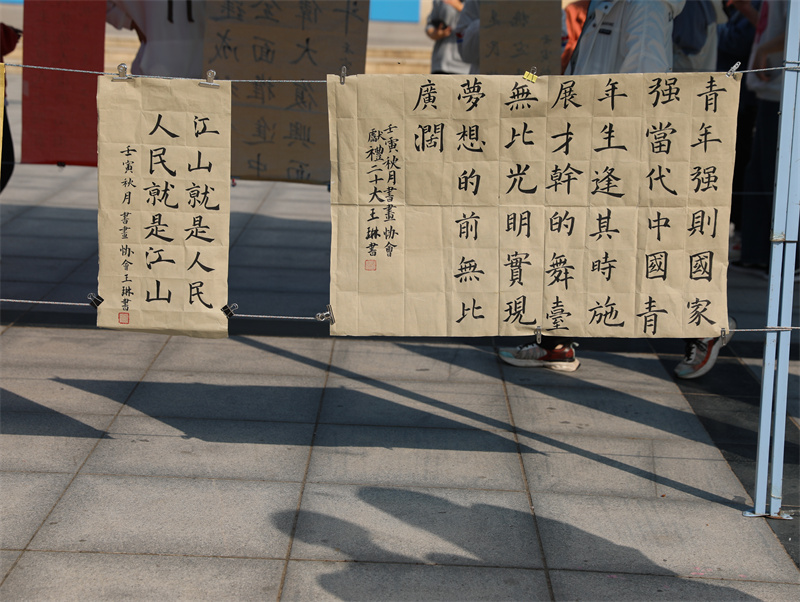 青年强則國家
强當代中國青
年生逢其時施
展才幹的舞臺
無比光明實現
夢想的前無比
廣闊
壬寅秋月書畫協會
獻禮二十大王琳書
江山就是人民
人民就是江山
壬寅秋月 書畫協會王琳書
大復興而
全面推進中